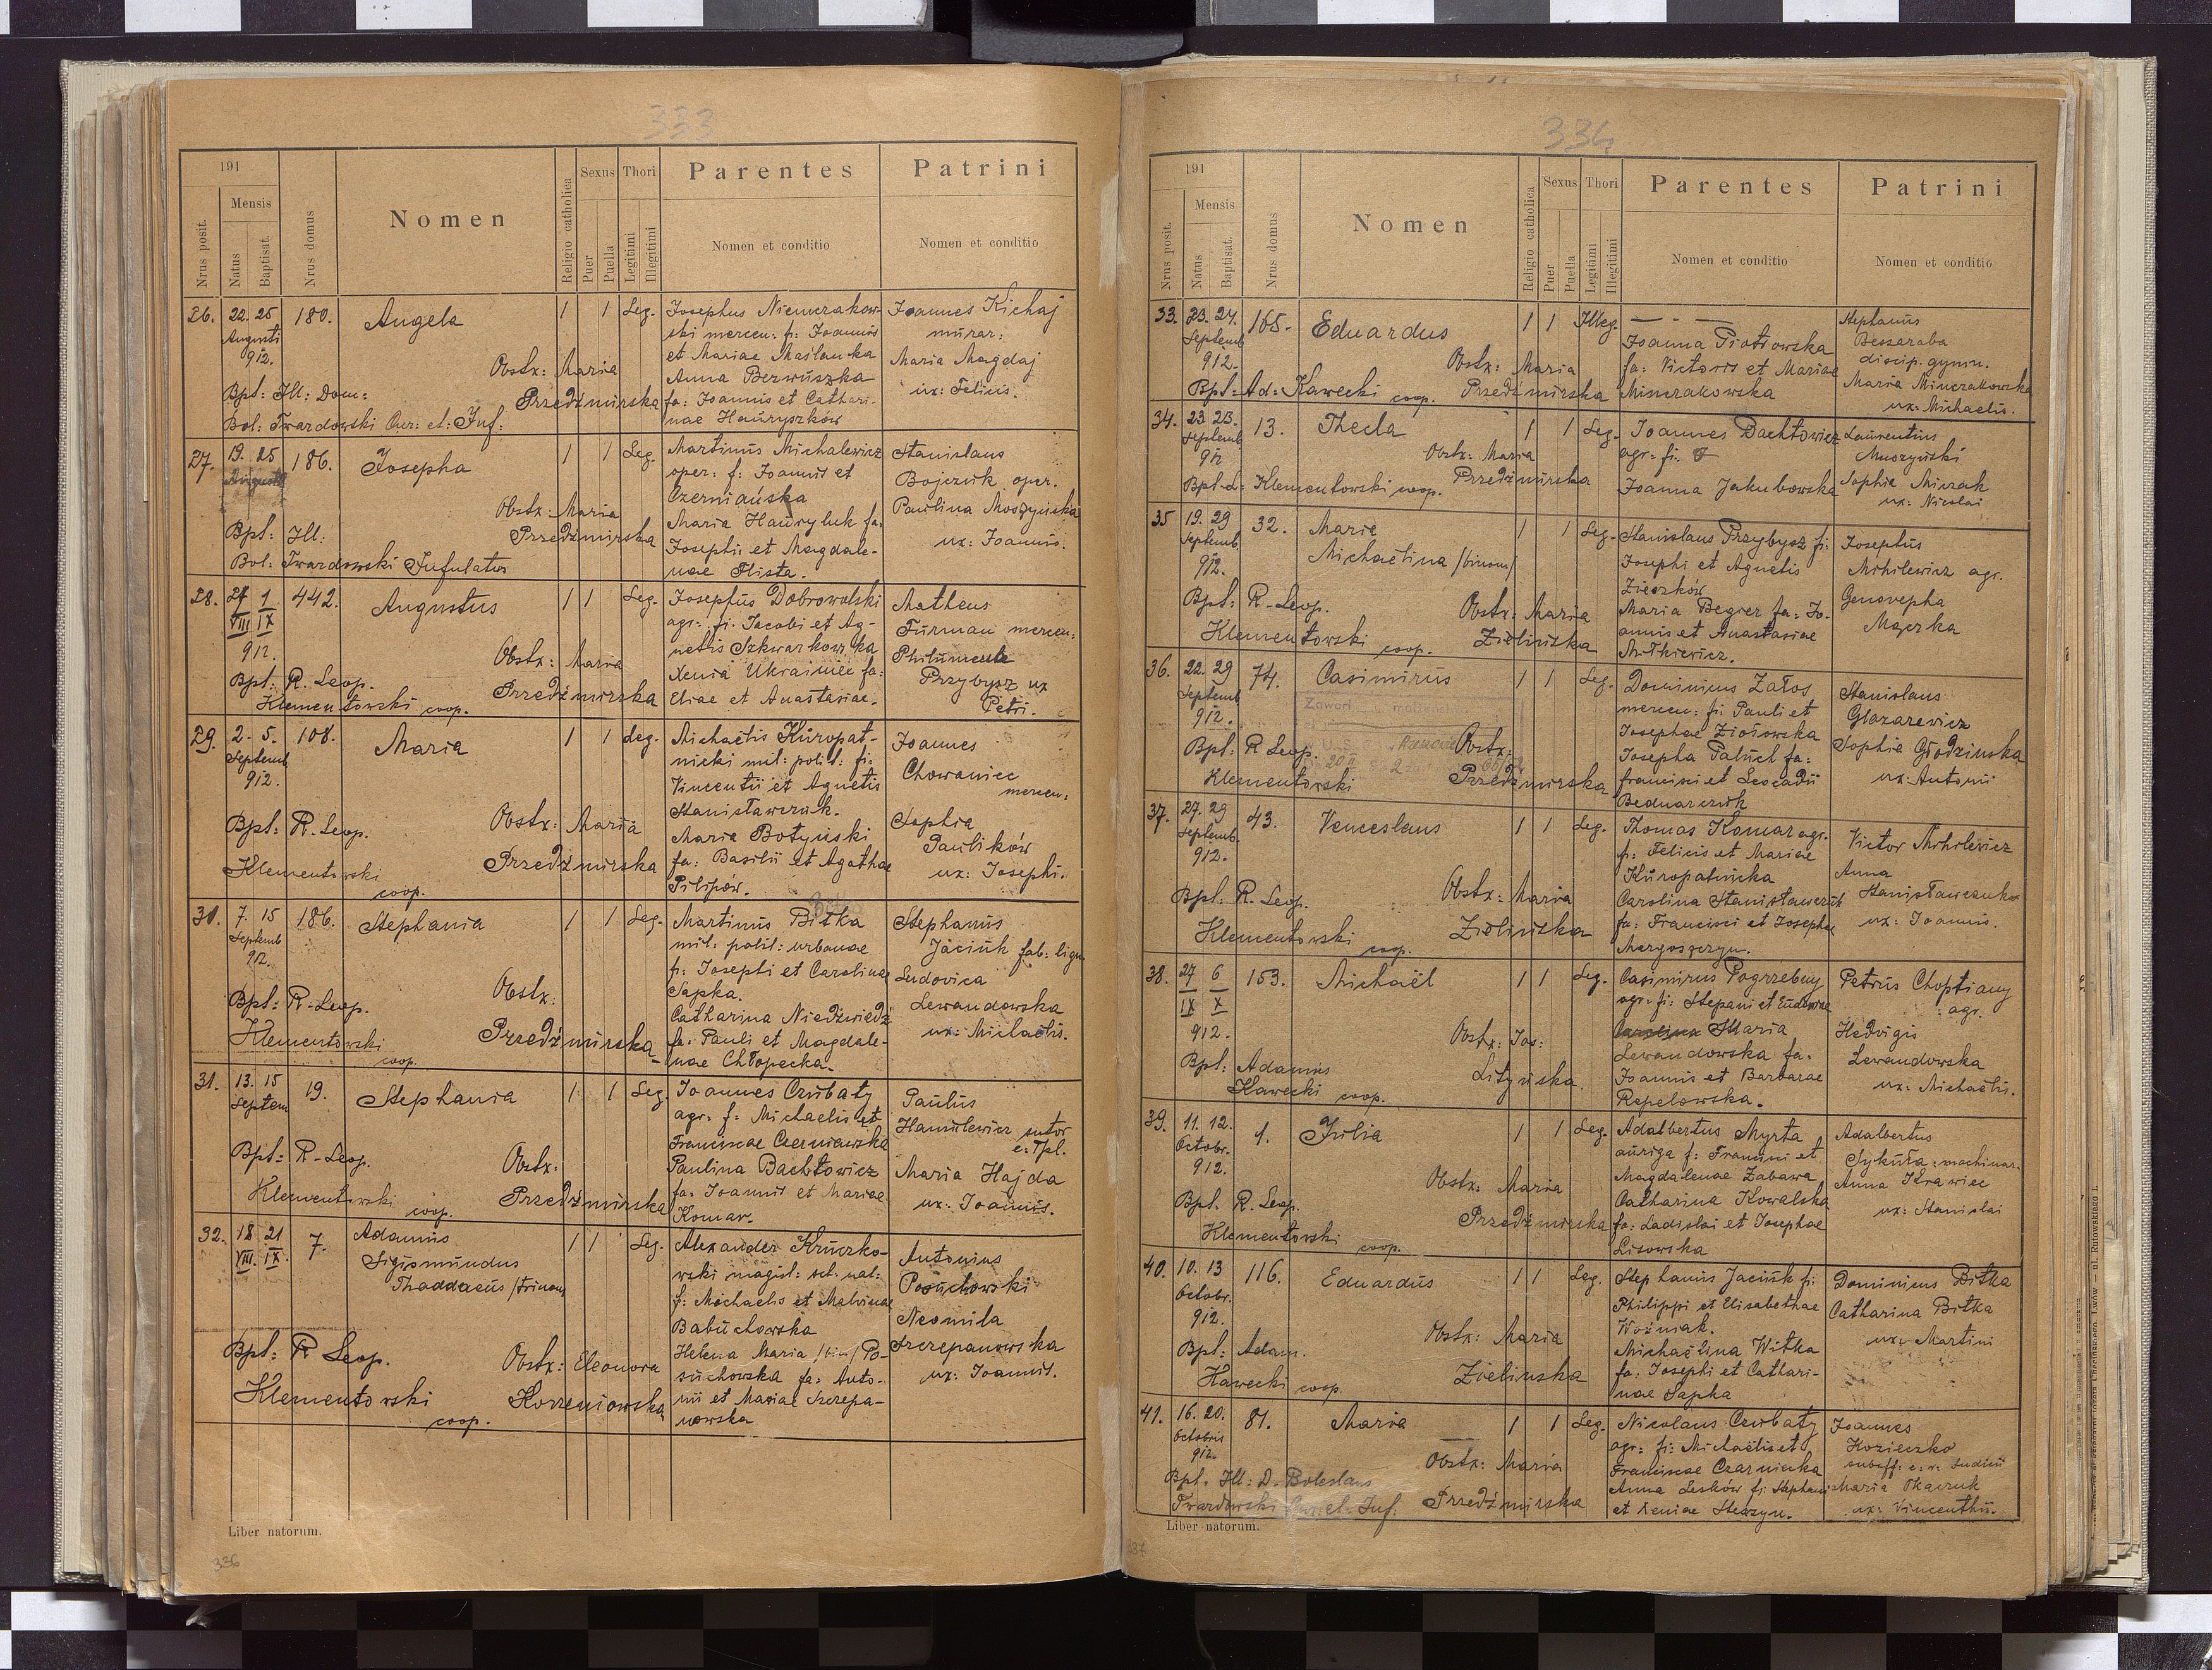 333
191
Nrus posit.
Mensis
Natus
Baptisat.
Nrus domus
Nomen
Religio catholica
Sexus
Puer
Puella
Thori
Legitimi
Illegitimi
Parentes
Nomen et conditio
Patrini
Nomen et conditio
26. 22. 25 180. Angela 1 1 Leg.
Augusti
912.
Obstx: Maria
Przedźmirska
Bpt: Ill: Dom:
Bol: Twardowski Cur: et: Inf:
Josephus Niemczakow-
ski mercen: fi: Joannis
et Mariae Maślanka
Anna Berwúszka
fa: Joannis et Cathari-
nae Haúryszków
Joannes Kichaj
múrar:
Maria Magdaj
ux: Felicis.
27. 19. 25 186. Josepha 1 1 Leg.
Augusti
Obstx: Maria
Przedźmirska
Bpt: Ill:
Bol: Twardowski Infulatus
Martinús Michalewicz
oper: f: Joannis et
Czerniańska
Maria Hawryluk fa:
Josephi et Magdale-
nae Flista.
Stanislaus
Bojczuk oper.
Paulina Moszyńska
ux: Joannis.
28. 27 1 442. Augustus 1 1 Leg.
VIII IX
912.
Obstx: Maria
Przedźmirska
Bpt: R. Leop.
Klementowski coop.
Josephús Dobrowolski
agr: fi: Jacobi et Ag-
netis Szkwarkowska
Xenia Ukrainiec fa:
Eliae et Anastasiae.
Matheus
Fúrman mercen:
Philumena
Przybysz ux
Petri.
29. 2. 5. 108. Maria 1 1 Leg.
Septemb
912.
Obstx: Maria
Przedźmirska
Bpt: R. Leop.
Klementowski
coop.
Michaëlis Kúropat-
nicki mil: polit: fi:
Vincentii et Agnetis
Stanisławczuk.
Maria Botyński
fa: Basilii et Agathae
Pilipów.
Joannes
Chowaniec
mercen:
Sophia
Paulików
ux: Josephi.
30. 7. 15 186. Stephania 1 1 Leg.
Septemb
912.
Obstx:
Przedźmirska
Bpt: R. Leop.
Klementowski
coop.
Martinús Bitka
mil: polit: urbanae
fi: Josephi et Carolinae
Sapka.
Catharina Niedźwiedź
fa: Pauli et Magdale-
nae Chłopecka.
Stephanús
Jaciúk fab: lign.
Ludovica
Lewandowska
ux: Michaëlis.
31. 13. 15 19. Stephania 1 1 Leg.
Septem
Obstx:
Przedźmirska
Bpt: R. Leop.
Klementowski coop.
Joannes Czubaty
agr. f: Michaelis et
Franciscae Czerniawska
Paulina Bachtowicz
fa: Joannis et Mariae
Komar.
Paulús
Hamulewicz sutor
Maria Hajda
ux: Joannis.
32. 18 21 7. Adamús
VIII. IX. Sigismúndus
Thaddaeús /trinom/ 1 1 Leg.
Obstx: Eleonora
Korzeniowska
Bpt: R Leop.
Klementowski
coop.
Alexander Krúczko-
wski magist: sch: nat:
f: Michaelis et Malvinae
Babúchowska
Helena Maria /bin/ Po-
súchowska fa: Anto-
nii et Mariae Szczepa-
nowska
Antonius
Posúchowski
Neomila
Szczepanowska
ux: Joannis.
Liber natorum.
336
334
191
Nrus posit.
Mensis
Natus
Baptisat.
Nrus domus
Nomen
Religio catholica
Sexus
Puer
Puella
Thori
Legitimi
Illegitimi
Parentes
Nomen et conditio
Patrini
Nomen et conditio
33. 23. 24. 165. Eduardus 1 1 Illeg.
Septemb
912.
Obstx: Maria
Przedźmirska
Bpt: Ad: Kawecki coop.
Joanna Piotrowska
fa: Victoris et Mariae
Minczakowska
Stephanus
Bessaraba
discip. gymn.
Maria Minczakowska
ux: Michaelis.
34. 23 23. 13. Thecla 1 1 Leg.
Septemb
912
Obstx: Maria
Przedźmirska
Bpt. L: Klementowski coop.
Joannes Bachtowicz
agr: fi:
Joanna Jakubowska
Laurentius
Muszyński
Sophia Mizrak
ux: Nicolai
35 19. 29 32. Marie
Michaëlina /binom/ 1 1 Leg.
Septemb
912.
Obstx: Maria
Zielińska
Bpt: R. Leop.
Klementowski coop.
Stanislaus Przybysz fi:
Josephi et Agnetis
Zieczków
Maria Begier fa: Jo-
annis et Anastasiae
Mitkiewicz.
Josephús
Michilewicz agr.
Genovepha
Majerka
36. 22. 29 74. Casimirús 1 1 Leg.
Septemb
912.
Zawarł
Obstx:
Przedźmirska
Bpt: R Leop.
Klementowski
Dominicus Załos
mercen: fi: Pauli et
Josephae Ziołowska
Josepha Palúch fa:
Francisci et Leocadii
Bednarczuk
Stanislaus
Glazarewicz
Sophia Głodzinska
ux: Antonii
37. 27. 29 43. Venceslaus 1 1 Leg.
Septemb.
912.
Obstx: Maria
Zielińska
Bpt: R. Leop.
Klementowski coop.
Thomas Komar agr.
fi: Felicis et Mariae
Kúropatnicka
Carolina Stanisławczuk
fa: Francisci et Josephae
Margoszczyn.
Victor Mihilewicz
Anna
Stanisławczuk
ux: Joannis.
38. 27 6 153. Michaël 1 1 Leg.
IX X
912.
Obstx: Jos:
Lityńska.
Bpt: Adamús
Kawecki coop.
Casimirus Pogrzebny
agr: fi: Stepani et Ludovica
Maria
Lewandowska fa:
Joannis et Barbarae
Repelowska.
Petrus Choptiany
agr.
Hedvigis
Lewandowska
ux: Michaëlis.
39. 11. 12. 1. Júlia 1 1 Leg.
Octobr.
912.
Obstx: Maria
Przedźmirska
Bpt. R. Leop.
Klementowski coop.
Adalbertus Myrta
aúriga f: Francisci et
Magdalenae Zabawa
Catharina Kowalska
fa: Ladislai et Josephae
Lisowska
Adalbertus
Sykúła machinar.
Anna Krawiec
ux: Stanislai
40. 10. 13 116. Eduardús 1 1 Leg.
Octobr.
912.
Obstx: Maria
Zielinska
Bpt: Adam.
Kawecki coop.
Stephanús Jaciúk fi:
Philippi et Elisabethae
Woźniak.
Michaëlina Witka
fa: Josephi et Cathari-
nae Sapka
Dominicus Bitka
Catharina Bitka
ux: Martini
41. 16. 20. 81. Maria 1 1 Leg.
Octobris
912.
Obstx: Maria
Przedźmirska
Bpt. Ill: D. Boleslaus
Twardowski Cur: et Inf.
Nicolaus Czubaty
agr: fi: Michaëlis et
Franciscae Czarniecka
Anna Leskow fi: Stephani
et Xeniae Steczyn.
Joannes
Kozieczko
Maria Tkaczuk
ux: Vincenthi.
Liber natorum.